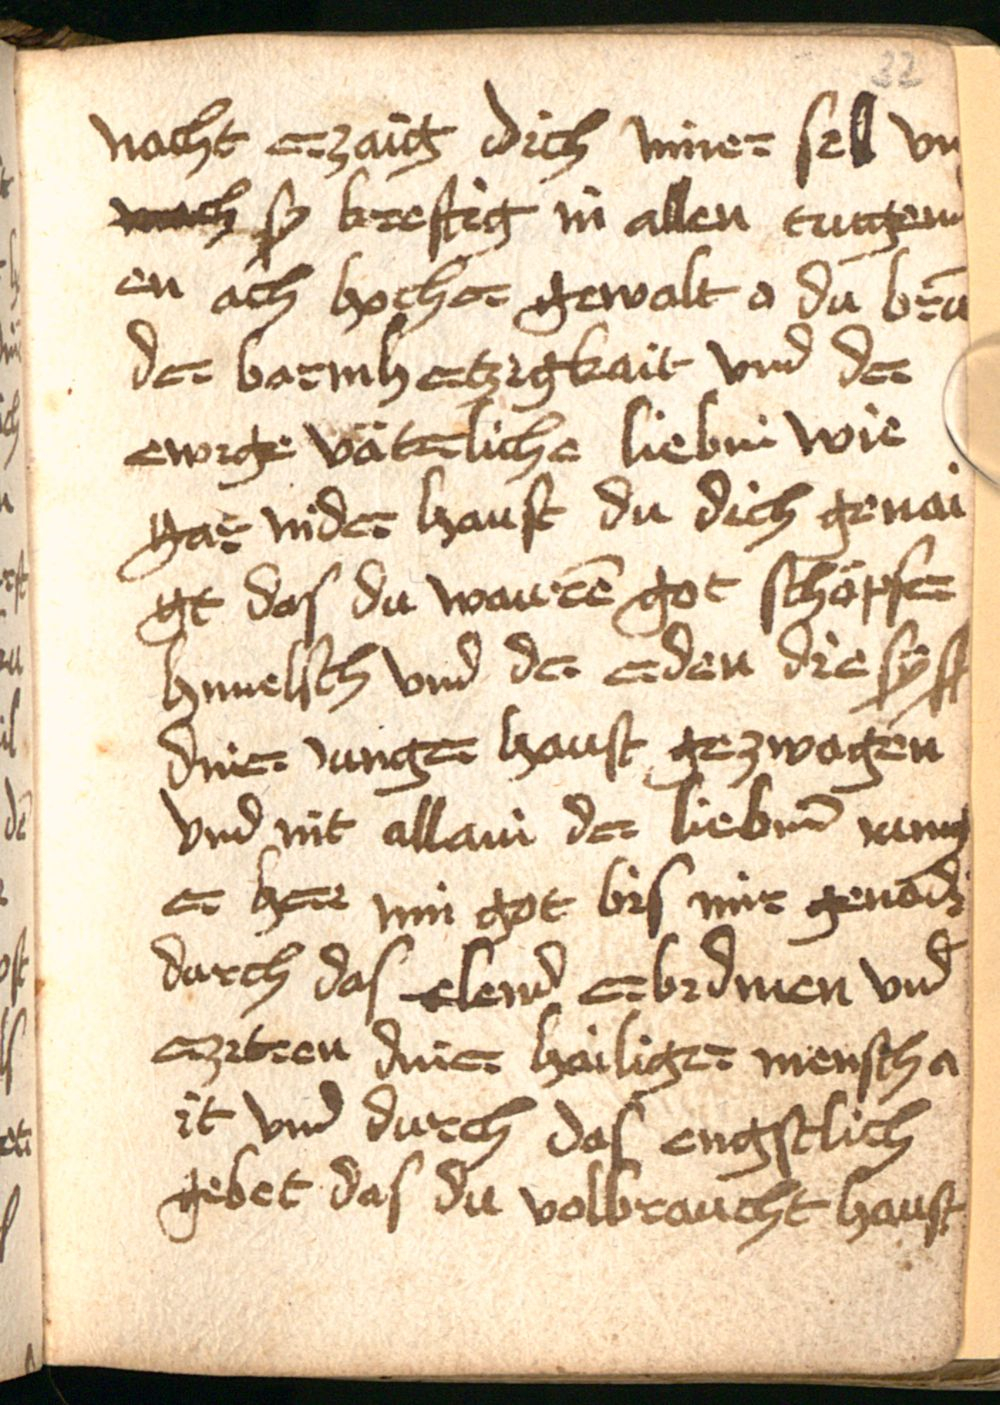 22
nacht erzaig dich miner sell vn
mach sy kreftig in allen tuogent
en ach hocher gewalt o du brun
der barmhertzigkait vnd der
ewige väterliche liebin wie
gar nider haust du dich genai
gt das du waurē got schöpfer
himelsch vnd der erden die syff
diner iunger haust gezwagen
vnd nit allain der liebin iung
er her min got bis mir genädi
durch das elend erbidmen vnd
erzitren diner hailiger mensch a
it vnd durch das engstlich
gebet das du volbraucht haust